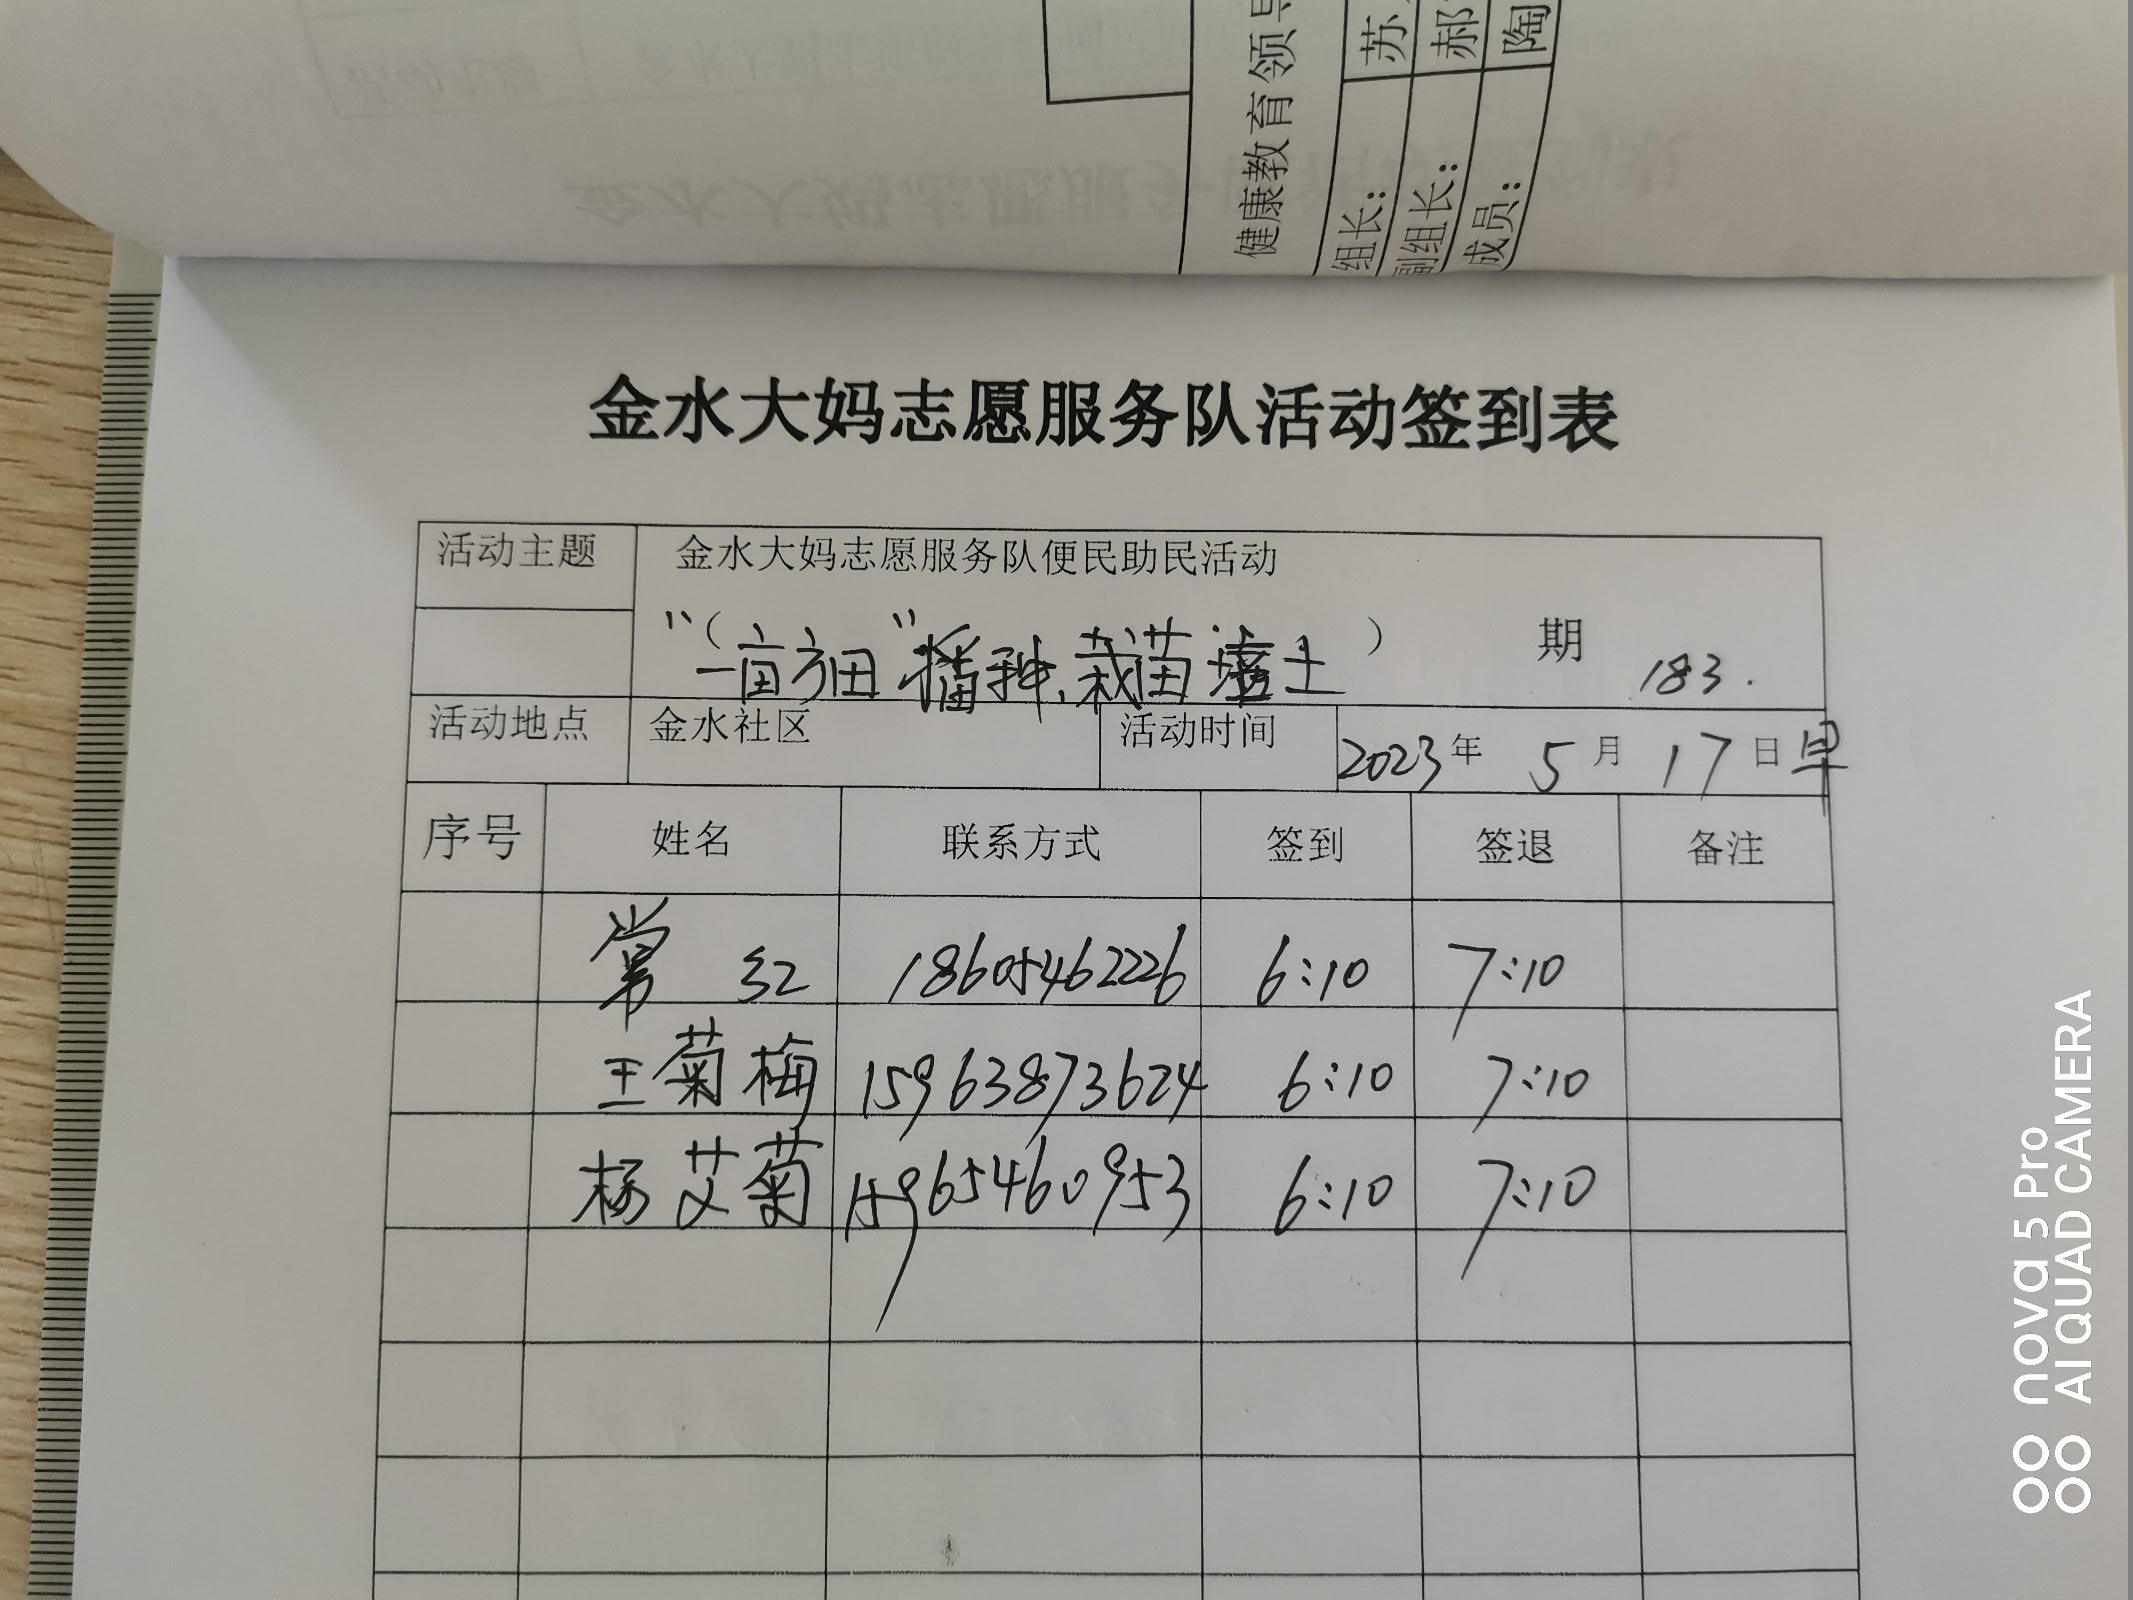 健康教育领导
组长：苏
副组长：郝
成员：陶
金水大妈志愿服务队活动签到表
活动主题 金水大妈志愿服务队便民助民活动
（“一亩方田”播种、栽苗 土） 期 183.
活动地点 金水社区 活动时间 2023年 5月 17日早
序号 姓名 联系方式 签到 签退 备注
常红 18605462226 6:10 7:10
王菊梅 15963873624 6:10 7:10
杨艾菊 15965460953 6:10 7:10
nova 5 Pro
AI QUAD CAMERA